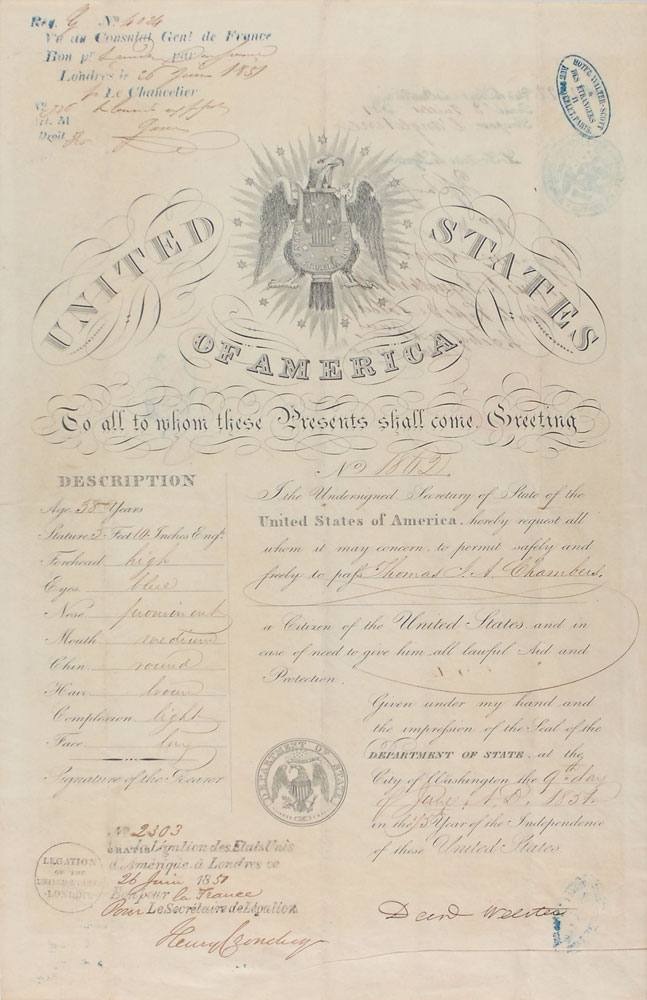 Reg. G No 4024
Vu au Consulat Genl. de France
Bon pr par
Londres le 26 Juin 1851
Le Chancelier
Droit
HOTEL WALTER-SCOTT
DES ÉTRANGERS
UNITED STATES
OF AMERICA.
To all to whom these Presents shall come, Greeting
No 1862.
DESCRIPTION
Age 38 Years
Stature 5 Feet 10 Inches Engs.
Forehead high
Eyes blue
Nose prominent
Mouth medium
Chin round
Hair brown
Complexion light
Face long
Signature of the Bearer
I the Undersigned Secretary of State of the
United States of America, hereby request all
whom it may concern, to permit safely and
freely to pass Thomas J. A. Chambers,
a Citizen of the United States and in
case of need to give him all lawful Aid and
Protection.
Given under my hand and
the impression of the Seal of the
DEPARTMENT OF STATE, at the
City of Washington the 9th day
of June, A.D. 1851,
in the 75 Year of the Independence
of these United States
DEPARTMENT OF STATE
No 2303
GRATIS La Légation des Etats Unis
d'Amérique à Londres ce
26 Juin 1851
Bon pour la France
Pour Le Secrétaire de Légation
LEGATION
OF THE
UNITED STATES
LONDON
Danl Webster